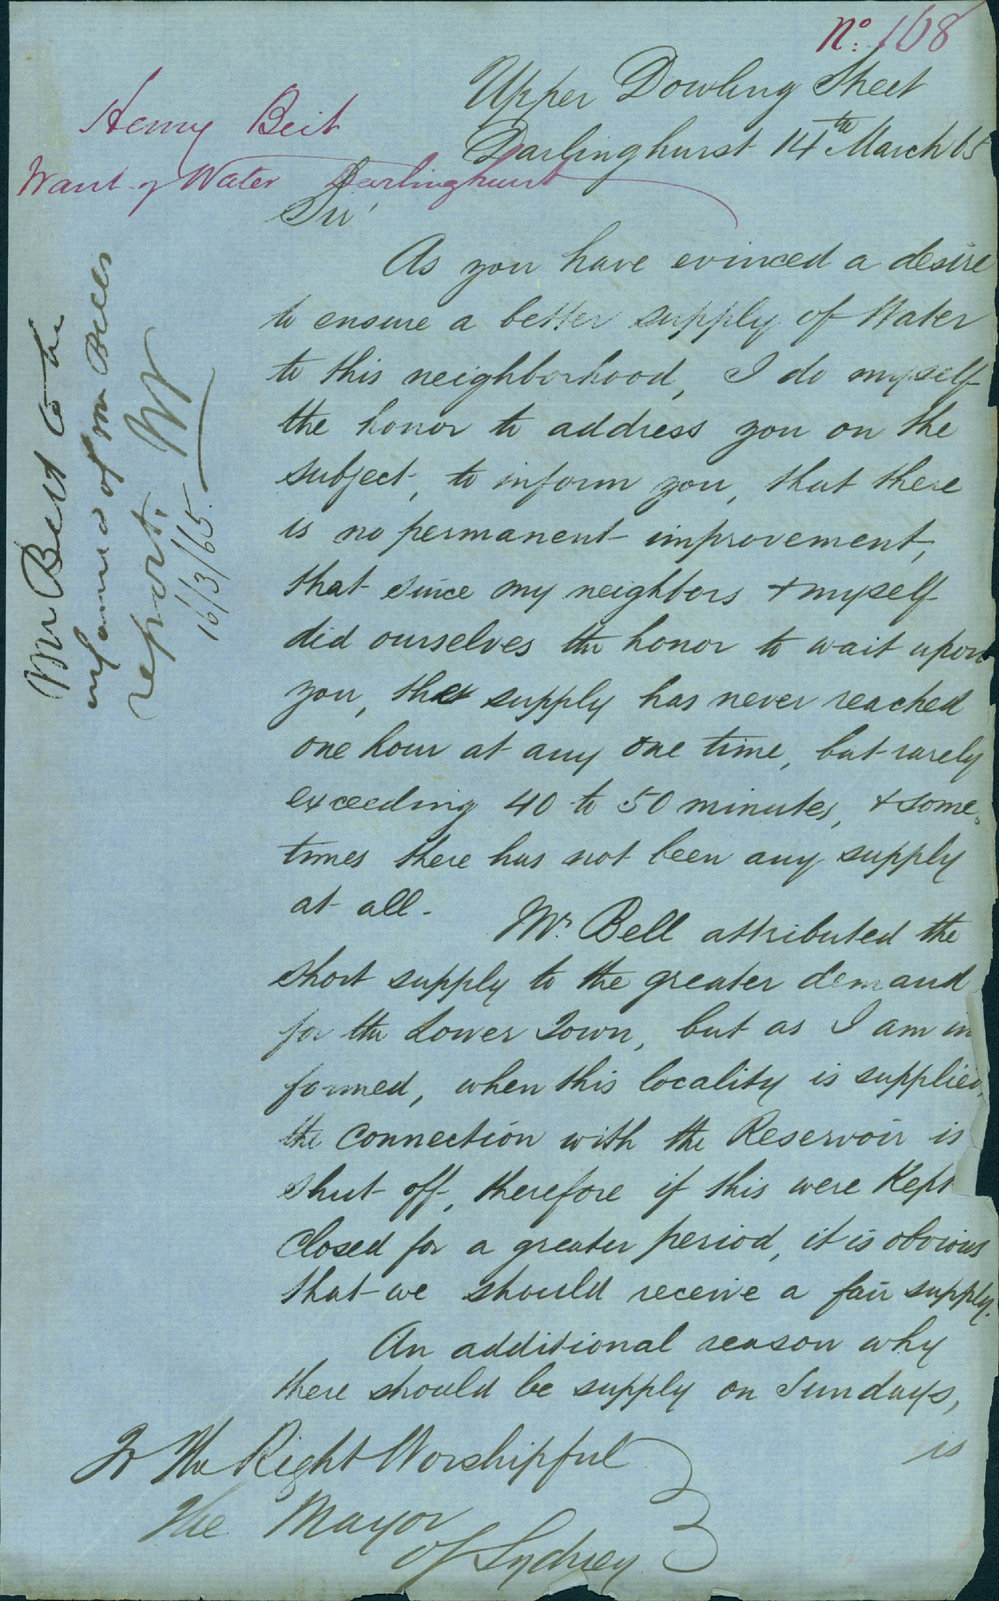 No. 168
Upper Dowling Street
Darlinghurst 14th March 65
Henry Beit
Want of Water Darlinghurst
Sir
As you have evinced a desire
to ensure a better supply of Water
to this neighborhood, I do myself
the honor to address you on the
subject, to inform you, that there
is no permanent improvement,
that since my neighbors & myself
did ourselves the honor to wait upon
you, the supply has never reached
one hour at any one time, but rarely
exceeding 40 to 50 minutes, & some=
times there has not been any supply
at all.
Mr. Bell attributed the
short supply to the greater demand
for the Lower Town, but as I am in
formed, when this locality is supplied,
the connection with the Reservoir is
shut off, therefore if this were Kept
Closed for a greater period, it is obvious
that we should receive a fair supply.
An additional reason why
there should be supply on Sundays,
is
To The Right Worshipful
The Mayor
of Sydney
Mr Beit to be
informed of Mr Bell's
report.
16/3/65